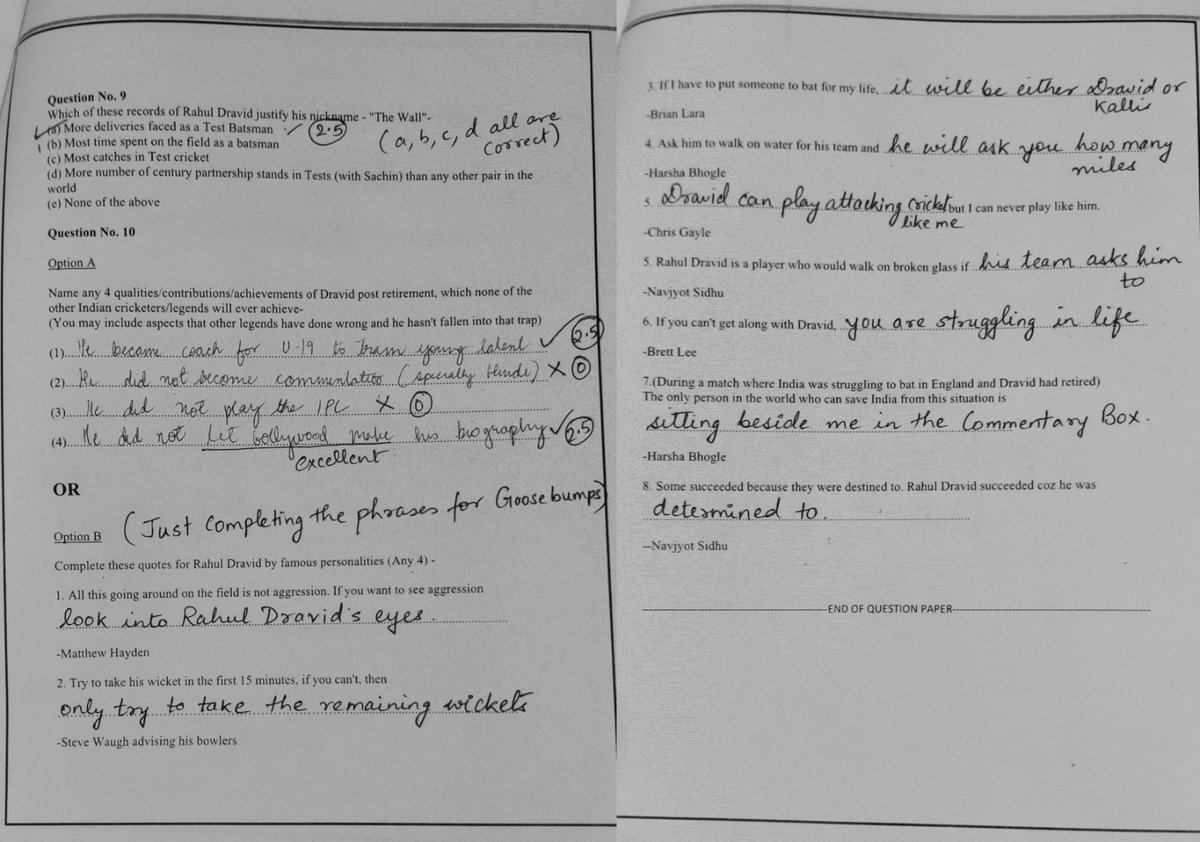 Question No. 9
Which of these records of Rahul Dravid justify his nickname - "The Wall"-
(a) More deliveries faced as a Test Batsman ✓ 2.5
(a, b, c, d all are
correct)
(b) Most time spent on the field as a batsman
(c) Most catches in Test cricket
(d) More number of century partnership stands in Tests (with Sachin) than any other pair in the
world
(e) None of the above
Question No. 10
Option A
Name any 4 qualities/contributions/achievements of Dravid post retirement, which none of the
other Indian cricketers/legends will ever achieve-
(You may include aspects that other legends have done wrong and he hasn't fallen into that trap)
(1) He became coach for U-19 to train young talent ✓ 2.5
(2) He did not become commentator (specially Hindi) X 0
(3) He did not play the IPL X 0
(4) He did not let bollywood make his biography ✓ 2.5
excellent
OR
Option B (Just completing the phrases for Goosebumps)
Complete these quotes for Rahul Dravid by famous personalities (Any 4) -
1. All this going around on the field is not aggression. If you want to see aggression
look into Rahul Dravid's eyes.
-Matthew Hayden
2. Try to take his wicket in the first 15 minutes, if you can't, then
only try to take the remaining wickets
-Steve Waugh advising his bowlers
3. If I have to put someone to bat for my life, it will be either Dravid or
Kallis
-Brian Lara
4. Ask him to walk on water for his team and he will ask you how many
miles
-Harsha Bhogle
5. Dravid can play attacking cricket but I can never play like him.
like me
-Chris Gayle
5. Rahul Dravid is a player who would walk on broken glass if his team asks him
to
-Navjyot Sidhu
6. If you can't get along with Dravid, you are struggling in life
-Brett Lee
7.(During a match where India was struggling to bat in England and Dravid had retired)
The only person in the world who can save India from this situation is
sitting beside me in the Commentary Box.
-Harsha Bhogle
8. Some succeeded because they were destined to. Rahul Dravid succeeded coz he was
determined to.
--Navjyot Sidhu
END OF QUESTION PAPER